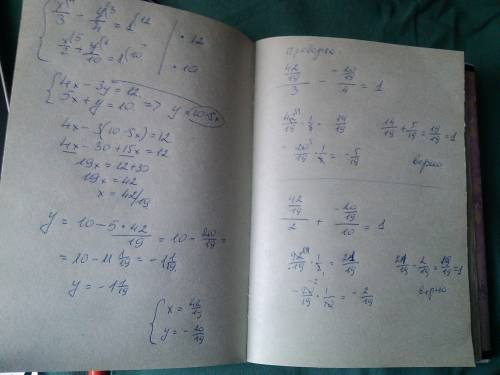 x/3 - y/4 = 1 | · 12
x/2 + y/10 = 1 | · 10
{ 4x - 3y = 12
5x + y = 10 => y = 10 - 5x
4x - 3(10 - 5x) = 12
4x - 30 + 15x = 12
19x = 12 + 30
19x = 42
x = 42/19
y = 10 - 5 · 42/19 = 10 - 210/19 =
= 10 - 11 1/19 = -1 1/19
y = -1 1/19
{ x = 42/19
y = -20/19
Проверка:
42/19 / 3 - -20/19 / 4 = 1
42/19 · 1/3 = 14/19 14/19 + 5/19 = 19/19 = 1
-20/19 · 1/4 = -5/19 верно
42/19 / 2 + -20/19 / 10 = 1
42/19 · 1/2 = 21/19 21/19 - 2/19 = 19/19 = 1
-20/19 · 1/10 = -2/19 верно